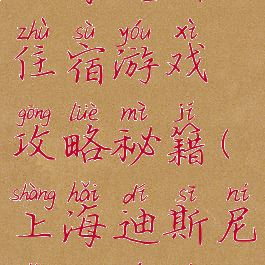 zhù sù yóu xì
住宿游戏
gōng lüè mì jí
攻略秘籍(
shàng hǎi dí sī ní
上海迪斯尼